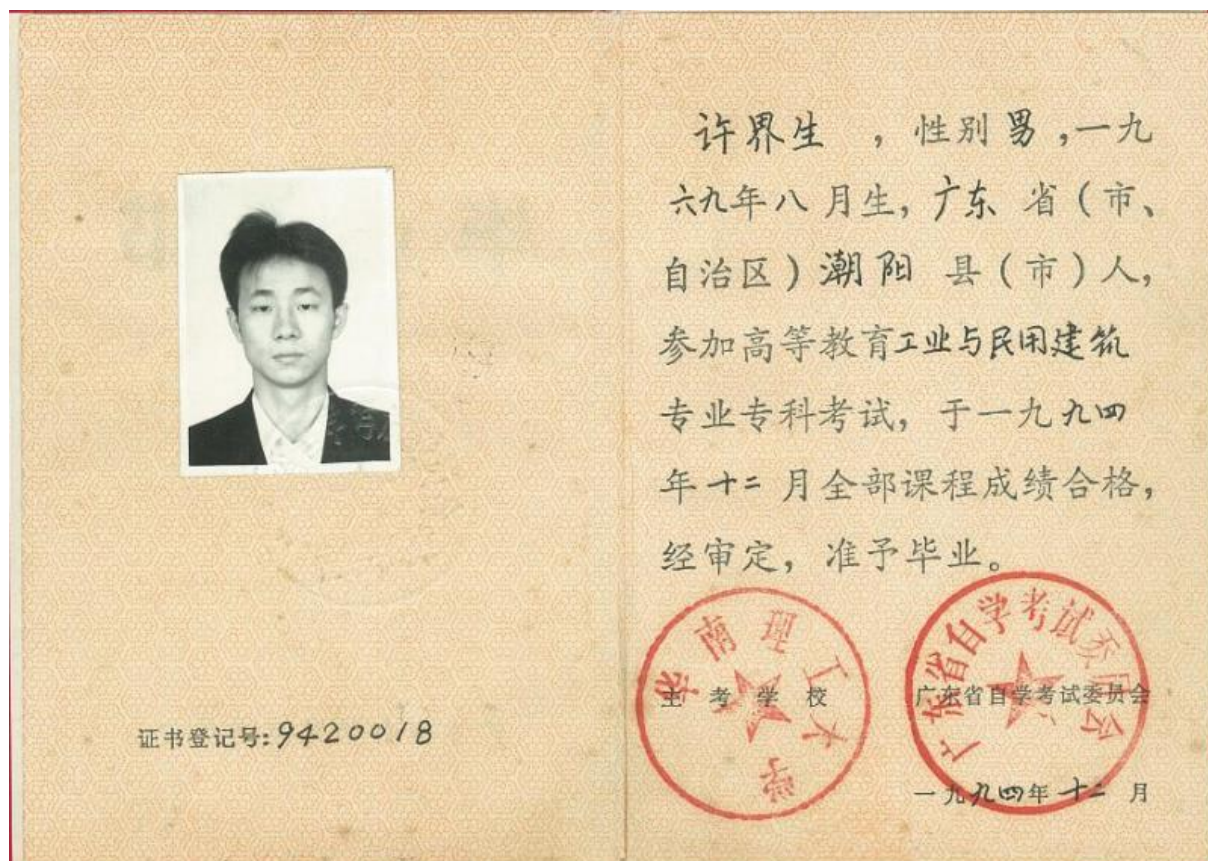 证书登记号:9420018
许界生 ,性别男,一九
六九年八月生,广东 省(市、
自治区)潮阳 县(市)人,
参加高等教育工业与民用建筑
专业专科考试,于一九九四
年十二月全部课程成绩合格,
经审定,准予毕业。
华南理工大学
主考学校
广东省自学考试委员会
广东省自学考试委员会
一九九四年十二月